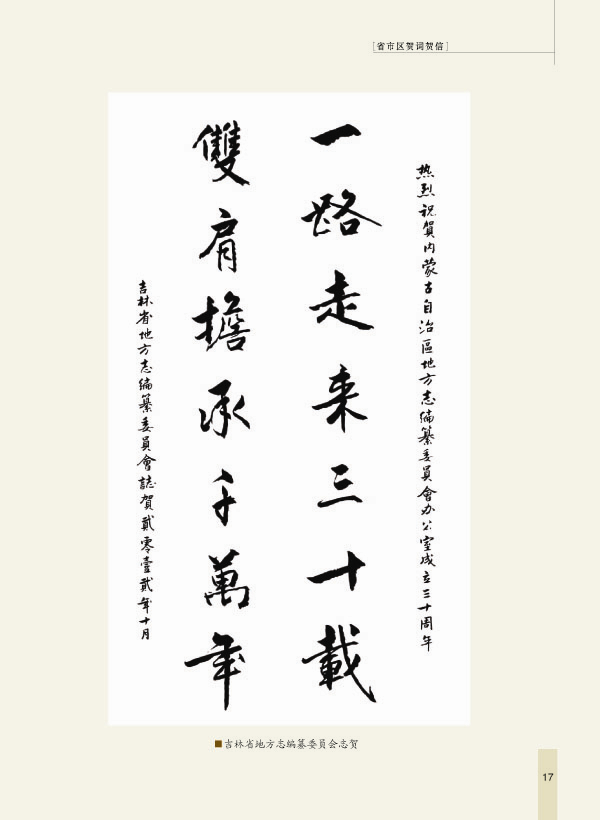 [省市区贺词贺信]
热烈祝賀内蒙古自治區地方志编纂委員會办公室成立三十周年
一路走来三十載
雙肩擔承千萬年
吉林省地方志编纂委員會誌賀貳零壹貳年十月
■吉林省地方志编纂委员会志贺
17